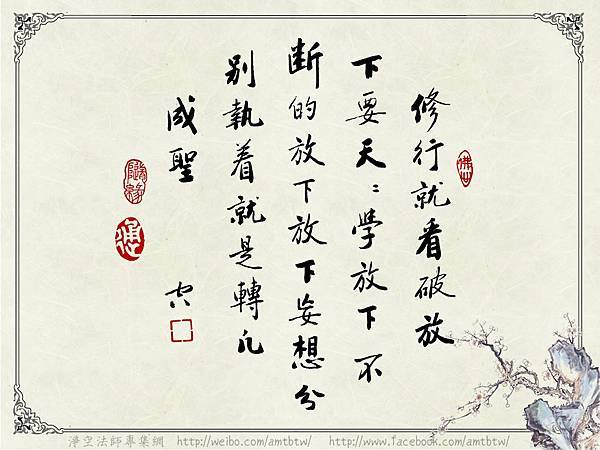 修行就看破放
下要天：學放下不
断的放下放下妄想分
别執着就是轉凡
成聖
淨空法師專集網 http://weibo.com/amtbtw/ http://www.facebook.com/amtbtw/